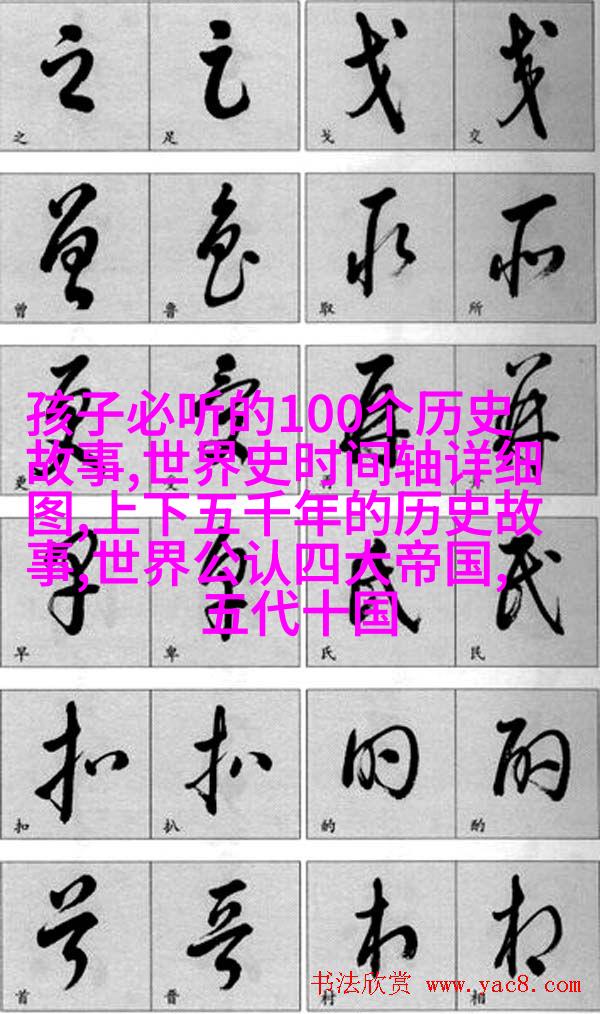 之 足 戈 交
曾 鲁 取 所
孩子必听的100个历史
故事,世界史时间轴详细
图,上下五千年的历史故
事,世界公认四大帝国,
五代十国
更
早 卑 氏 民
扣 扒 的 酌
首 晋 村 相
书法欣赏 www.yac8.com